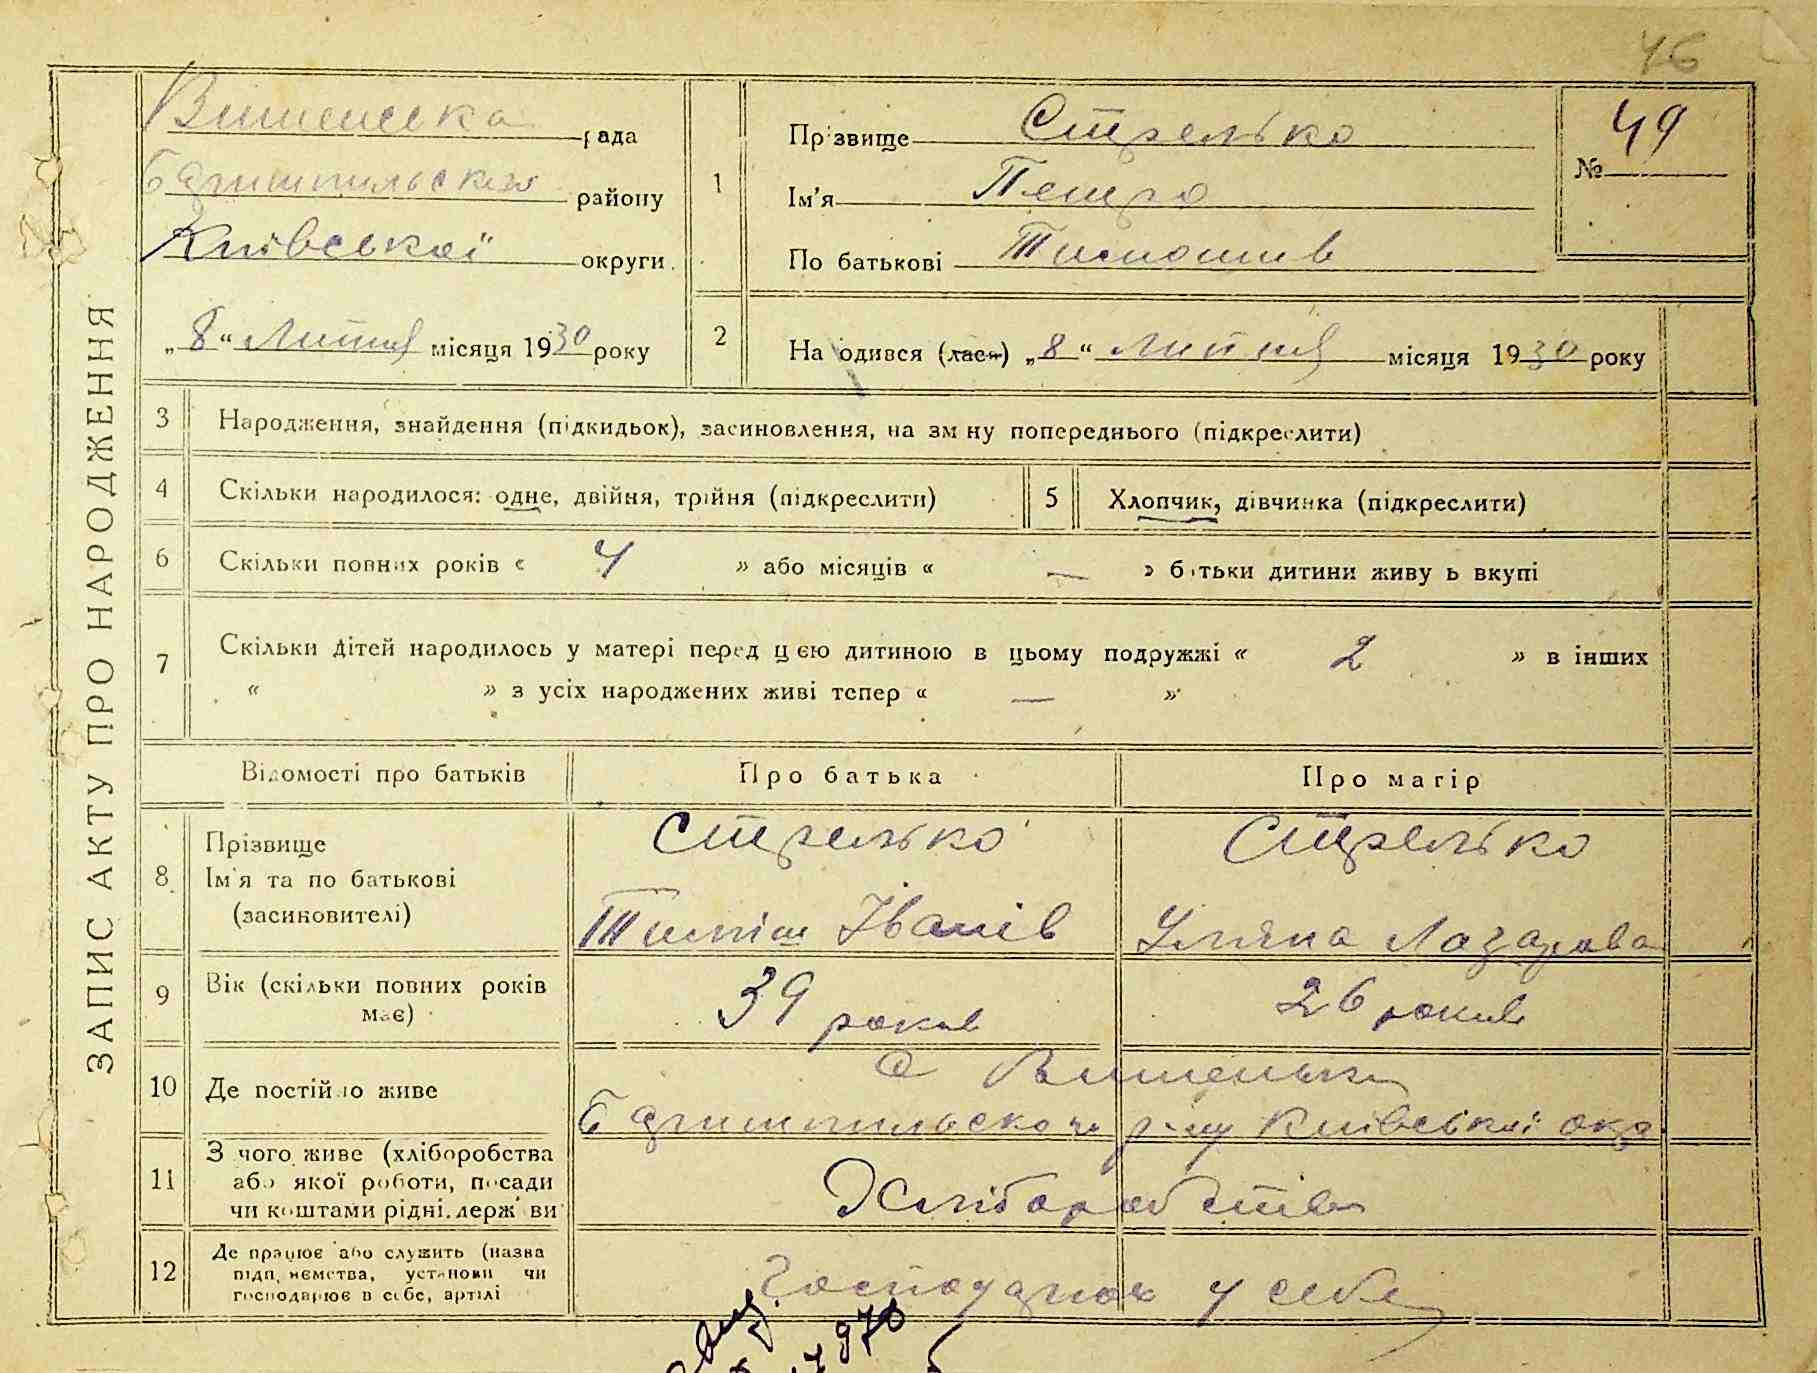 46
ЗАПИС АКТУ ПРО НАРОДЖЕННЯ
Вишенська рада
Баришпильского району
Київської округи
„8“ Липня місяця 1930 року
1
Прізвище Стрелько
Ім'я Петро
По батькові Тимошив
№ 49
2
На одився (лася) „8“ Липня місяця 1930 року
3 Народження, знайдення (підкидьок), засиновлення, на зм ну попереднього (підкреслити)
4 Скільки народилося: одне, двійня, трійня (підкреслити)
5 Хлопчик, дівчинка (підкреслити)
6 Скільки повних років « 4 » або місяців « — » б тьки дитини живу ь вкупі
7 Скільки дітей народилось у матері перед цею дитиною в цьому подружжі « 2 » в інших
« » з усіх народжених живі тепер « — »
Відомості про батьків Про батька Про матір
8 Прізвище
Ім'я та по батькові
(засиновителі)
Стрелько
Тиміш Іванів
Стрелько
Уляна Лазарова
9 Вік (скільки повних років
має)
39 років
26 років
10 Де постійно живе
с Вишеньки
Баришпильского р-ну Київської окр
11 З чого живе (хліборобства
або якої роботи, посади
чи коштами рідні, держ ви
Хліборобства
12 Де працює або служить (назва
підп иємства, установи чи
господарює в себе, артілі
Господарює у себе
1970